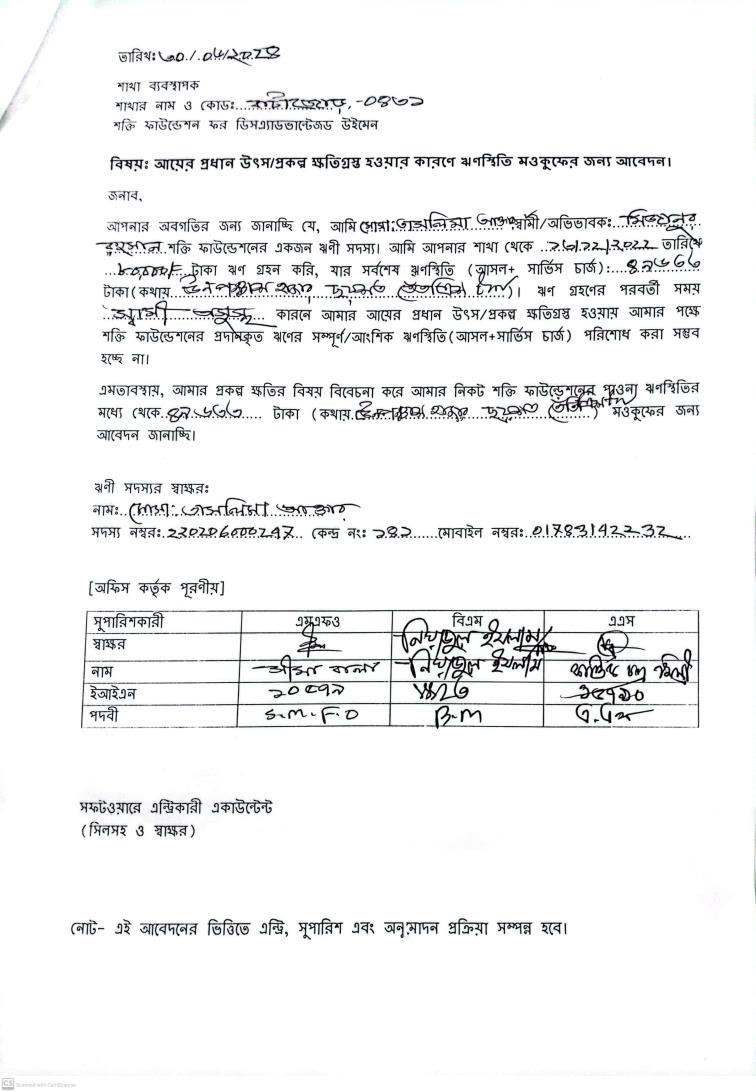 তারিখঃ ৩০/০৪/২০২৪
শাখা ব্যবস্থাপক
শাখার নাম ও কোডঃ
শক্তি ফাউন্ডেশন ফর ডিসএ্যাডভান্টেজড উইমেন
বিষয়ঃ আয়ের প্রধান উৎস/প্রকল্প ক্ষতিগ্রস্ত হওয়ার কারণে ঋণস্থিতি মওকুফের জন্য আবেদন।
জনাব,
আপনার অবগতির জন্য জানাচ্ছি যে, আমি মোসা: তাসলিমা আক্তার স্বামী/অভিভাবক: মিজানুর
রহমান শক্তি ফাউন্ডেশনের একজন ঋণী সদস্য। আমি আপনার শাখা থেকে তারিখে
৮০০০০/- টাকা ঋণ গ্রহন করি, যার সর্বশেষ ঋণস্থিতি (আসল+ সার্ভিস চার্জ): ৪৯৬৬৬
টাকা (কথায় ঊনপঞ্চাশ হাজার ছয়শত)। ঋণ গ্রহণের পরবর্তী সময়
স্বামী অসুস্থ কারনে আমার আয়ের প্রধান উৎস/প্রকল্প ক্ষতিগ্রস্ত হওয়ায় আমার পক্ষে
শক্তি ফাউন্ডেশনের প্রদানকৃত ঋণের সম্পূর্ণ/আংশিক ঋণস্থিতি (আসল+সার্ভিস চার্জ) পরিশোধ করা সম্ভব
হচ্ছে না।
এমতাবস্থায়, আমার প্রকল্প ক্ষতির বিষয় বিবেচনা করে আমার নিকট শক্তি ফাউন্ডেশনের পাওনা ঋণস্থিতির
মধ্যে থেকে টাকা (কথায় ঊনপঞ্চাশ হাজার ছয়শত) মওকুফের জন্য
আবেদন জানাচ্ছি।
ঋণী সদস্যর স্বাক্ষরঃ
নামঃ মোসা: তাসলিমা আক্তার
সদস্য নম্বরঃ কেন্দ্র নংঃ মোবাইল নম্বরঃ 01783142232
[অফিস কর্তৃক পূরণীয়]
সুপারিশকারী এমএফও বিএম এএস
স্বাক্ষর
নাম সীমা বালা
ইআইএন
পদবী S.M.F.O B.M এ.এস
সফটওয়ারে এন্ট্রিকারী একাউন্টেন্ট
(সিলসহ ও স্বাক্ষর)
নোট- এই আবেদনের ভিত্তিতে এন্ট্রি, সুপারিশ এবং অনুমোদন প্রক্রিয়া সম্পন্ন হবে।
CS Scanned with CamScanner